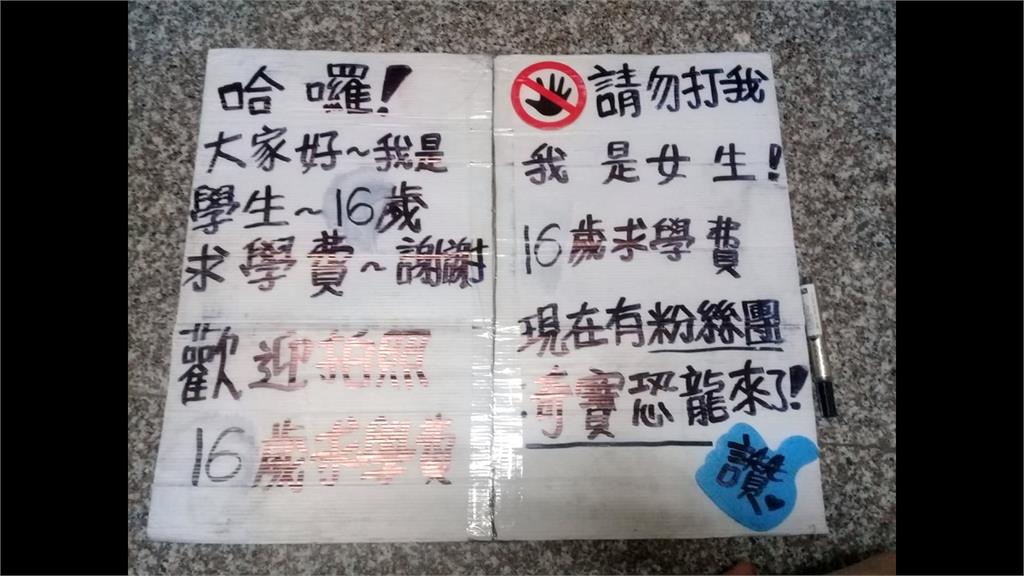 哈囉!
大家好~我是
學生~16歲
求學費~謝謝
歡迎拍照
16歲求學費
請勿打我
我是女生!
16歲求學費
現在有粉絲團
奇寶恐龍來了!
讚